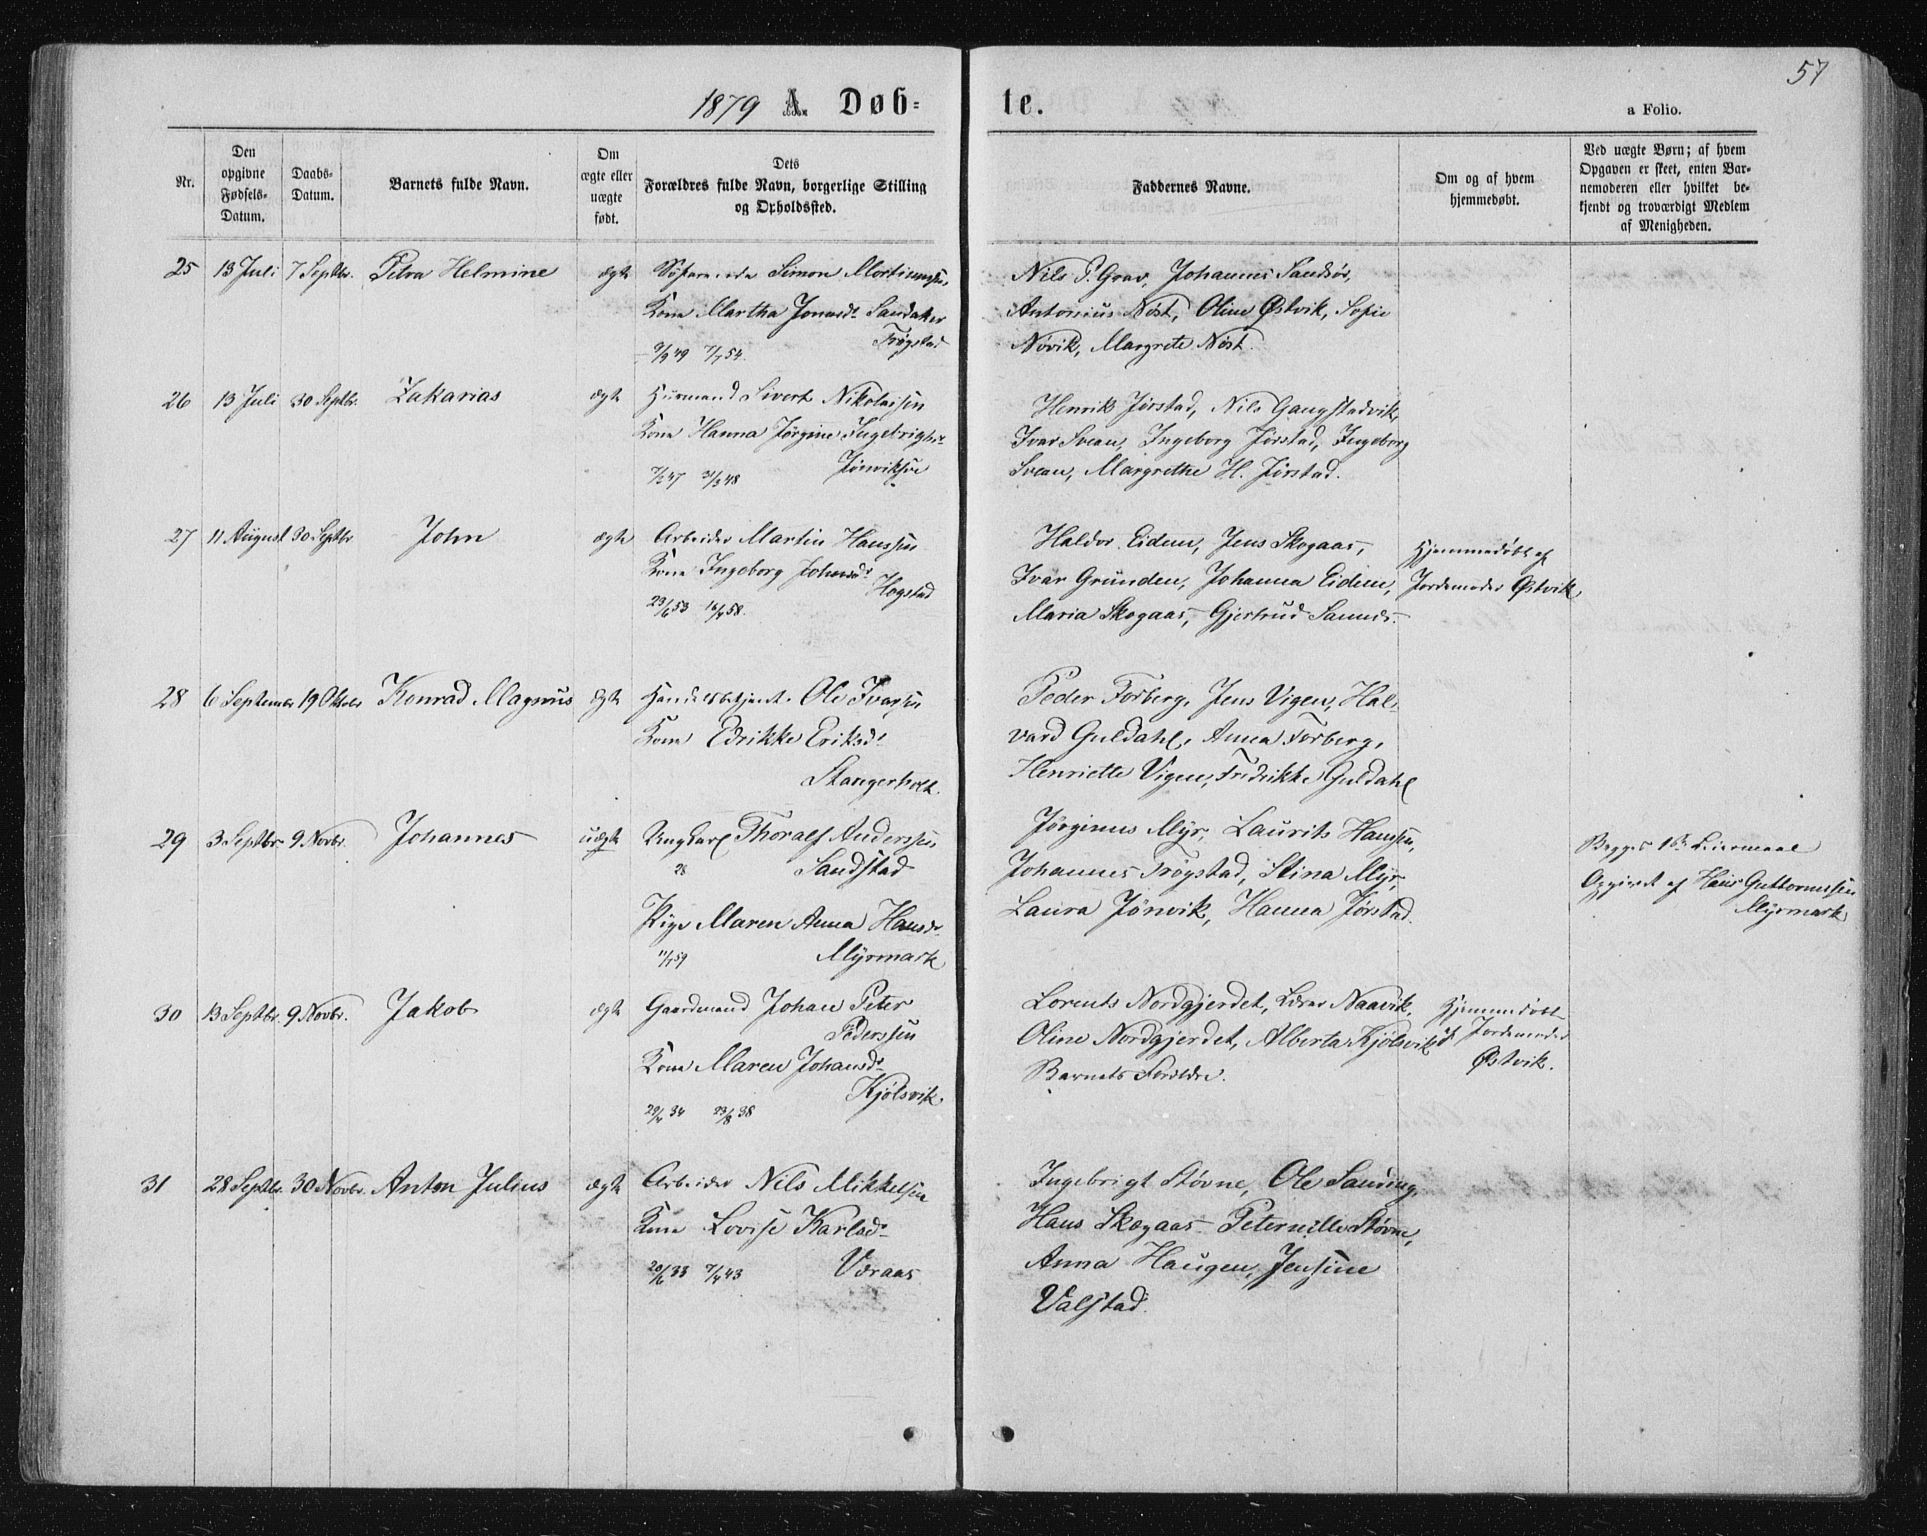 57
1879 A. Døb-
te.
a Folio.
Nr.
Den opgivne Fødsels-Datum.
Daabs-Datum.
Barnets fulde Navn.
Om ægte eller uægte født.
Dets Forældres fulde Navn, borgerlige Stilling og Opholdssted.
Faddernes Navne.
Om og af hvem hjemmedøbt.
Ved uægte Børn; af hvem Opgaven er skeet, enten Barnemoderen eller hvilket bekjendt og troværdigt Medlem af Menigheden.
25 13 Juli 7 Septbr. Petra Helmine ægte Simon Mortinussen,
Kone Martha Jonasdr Sandaker
Trøgstad
9/9 49 7/7 54.
Nils P. Grav, Johannes Sandsør,
Antonius Nøst, Oline Østvik, Sofie
Nøvik, Margrete Nøst.
26 13 Juli 30 Septbr. Zakarias ægte Husmand Sivert Nikolaisen
Kone Hanna Jørgine Ingebrigtsdr
Jørviksøe
31/3 48
Henrik Jørstad, Nils Gangstadvik,
Ivar Svean, Ingeborg Jørstad, Ingeborg
Svean, Margrethe H. Jørstad.
27 11 August 30 Septbr John ægte Arbeider Martin Hanssen
Kone Ingeborg Johnsdr
Hogstad
23/6 53 16/4 58.
Haldor Eidem, Jens Skogaas,
Ivar Grunden, Johanna Eidem,
Maria Skogaas, Gjertrud
Hjemmedøbt af
Jordemoder Østvik
28 6 September 19 Oktobr Konrad Magnus ægte Handelsbetjent Ole Ivarsen
Kone Edrikke Eriksdr
Stangerholt.
Peder Forberg, Jens Vigen, Hal-
vard Guldahl, Anna Forberg,
Henriette Vigen, Fredrikke Guldahl
29 3 Septbr 9 Novbr. Johannes uægte Ungkarl Thoralf Anderssen
28 Sandstad
Pige Maren Anna Hansdr
11/7 59 Myrmark
Jørginus Myr, Laurits Hanssen,
Johannes Trøgstad, Stina Myr,
Laura Jørvik, Hanna Jørstad.
Begges 1ste Leiermaal
Opgivet af Hans Guttormsen
Myrmark
30 13 Septbr. 9 Novbr. Jakob ægte Gaardmand Johan Peter
Pederssen
Kone Maren Johansdr
Kjølsvik
29/4 34 23/8 38
Lorents Nordgjerdet, Naavik,
Oline Nordgjerdet, Alberta Kjølsvik
Barnets Forældre.
Hjemmedøbt
af Jordemoder
Østvik.
31 28 Septbr. 30 Novbr. Anton Julius ægte Arbeider Nils Mikkelsen
Kone Lovise Karlsdr
20/6 33 7/4 43 Vdraas
Ingebrigt Støvne, Ole Sanding,
Hans Skogaas, Peternille Støvne,
Anna Haugen, Jensine
Valstad.